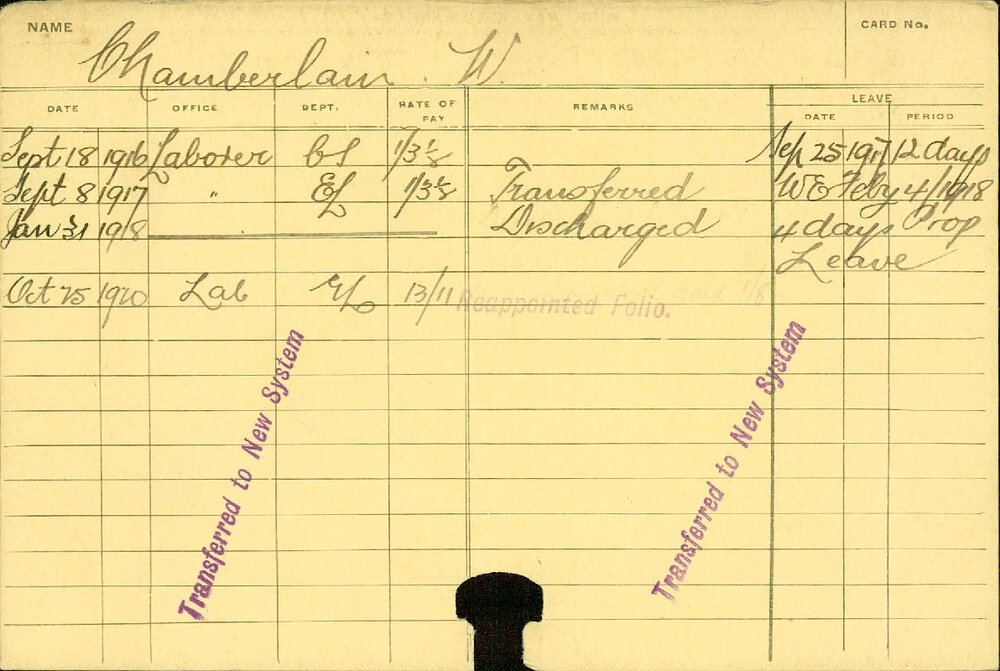 NAME Chamberlain. W. CARD No.
DATE OFFICE DEPT. RATE OF PAY REMARKS LEAVE DATE PERIOD
Sept 18 1916 Laborer 1/3⅛ Sep 25 1917 12 days
Sept 8 1917 " EL 1/3⅛ Transferred WE Feby 4/1918
Jan 31 1918 Discharged 4 days Prop
Leave
Oct 25 1920 Lab EL 13/11 Reappointed Folio.
Transferred to New System
Transferred to New System